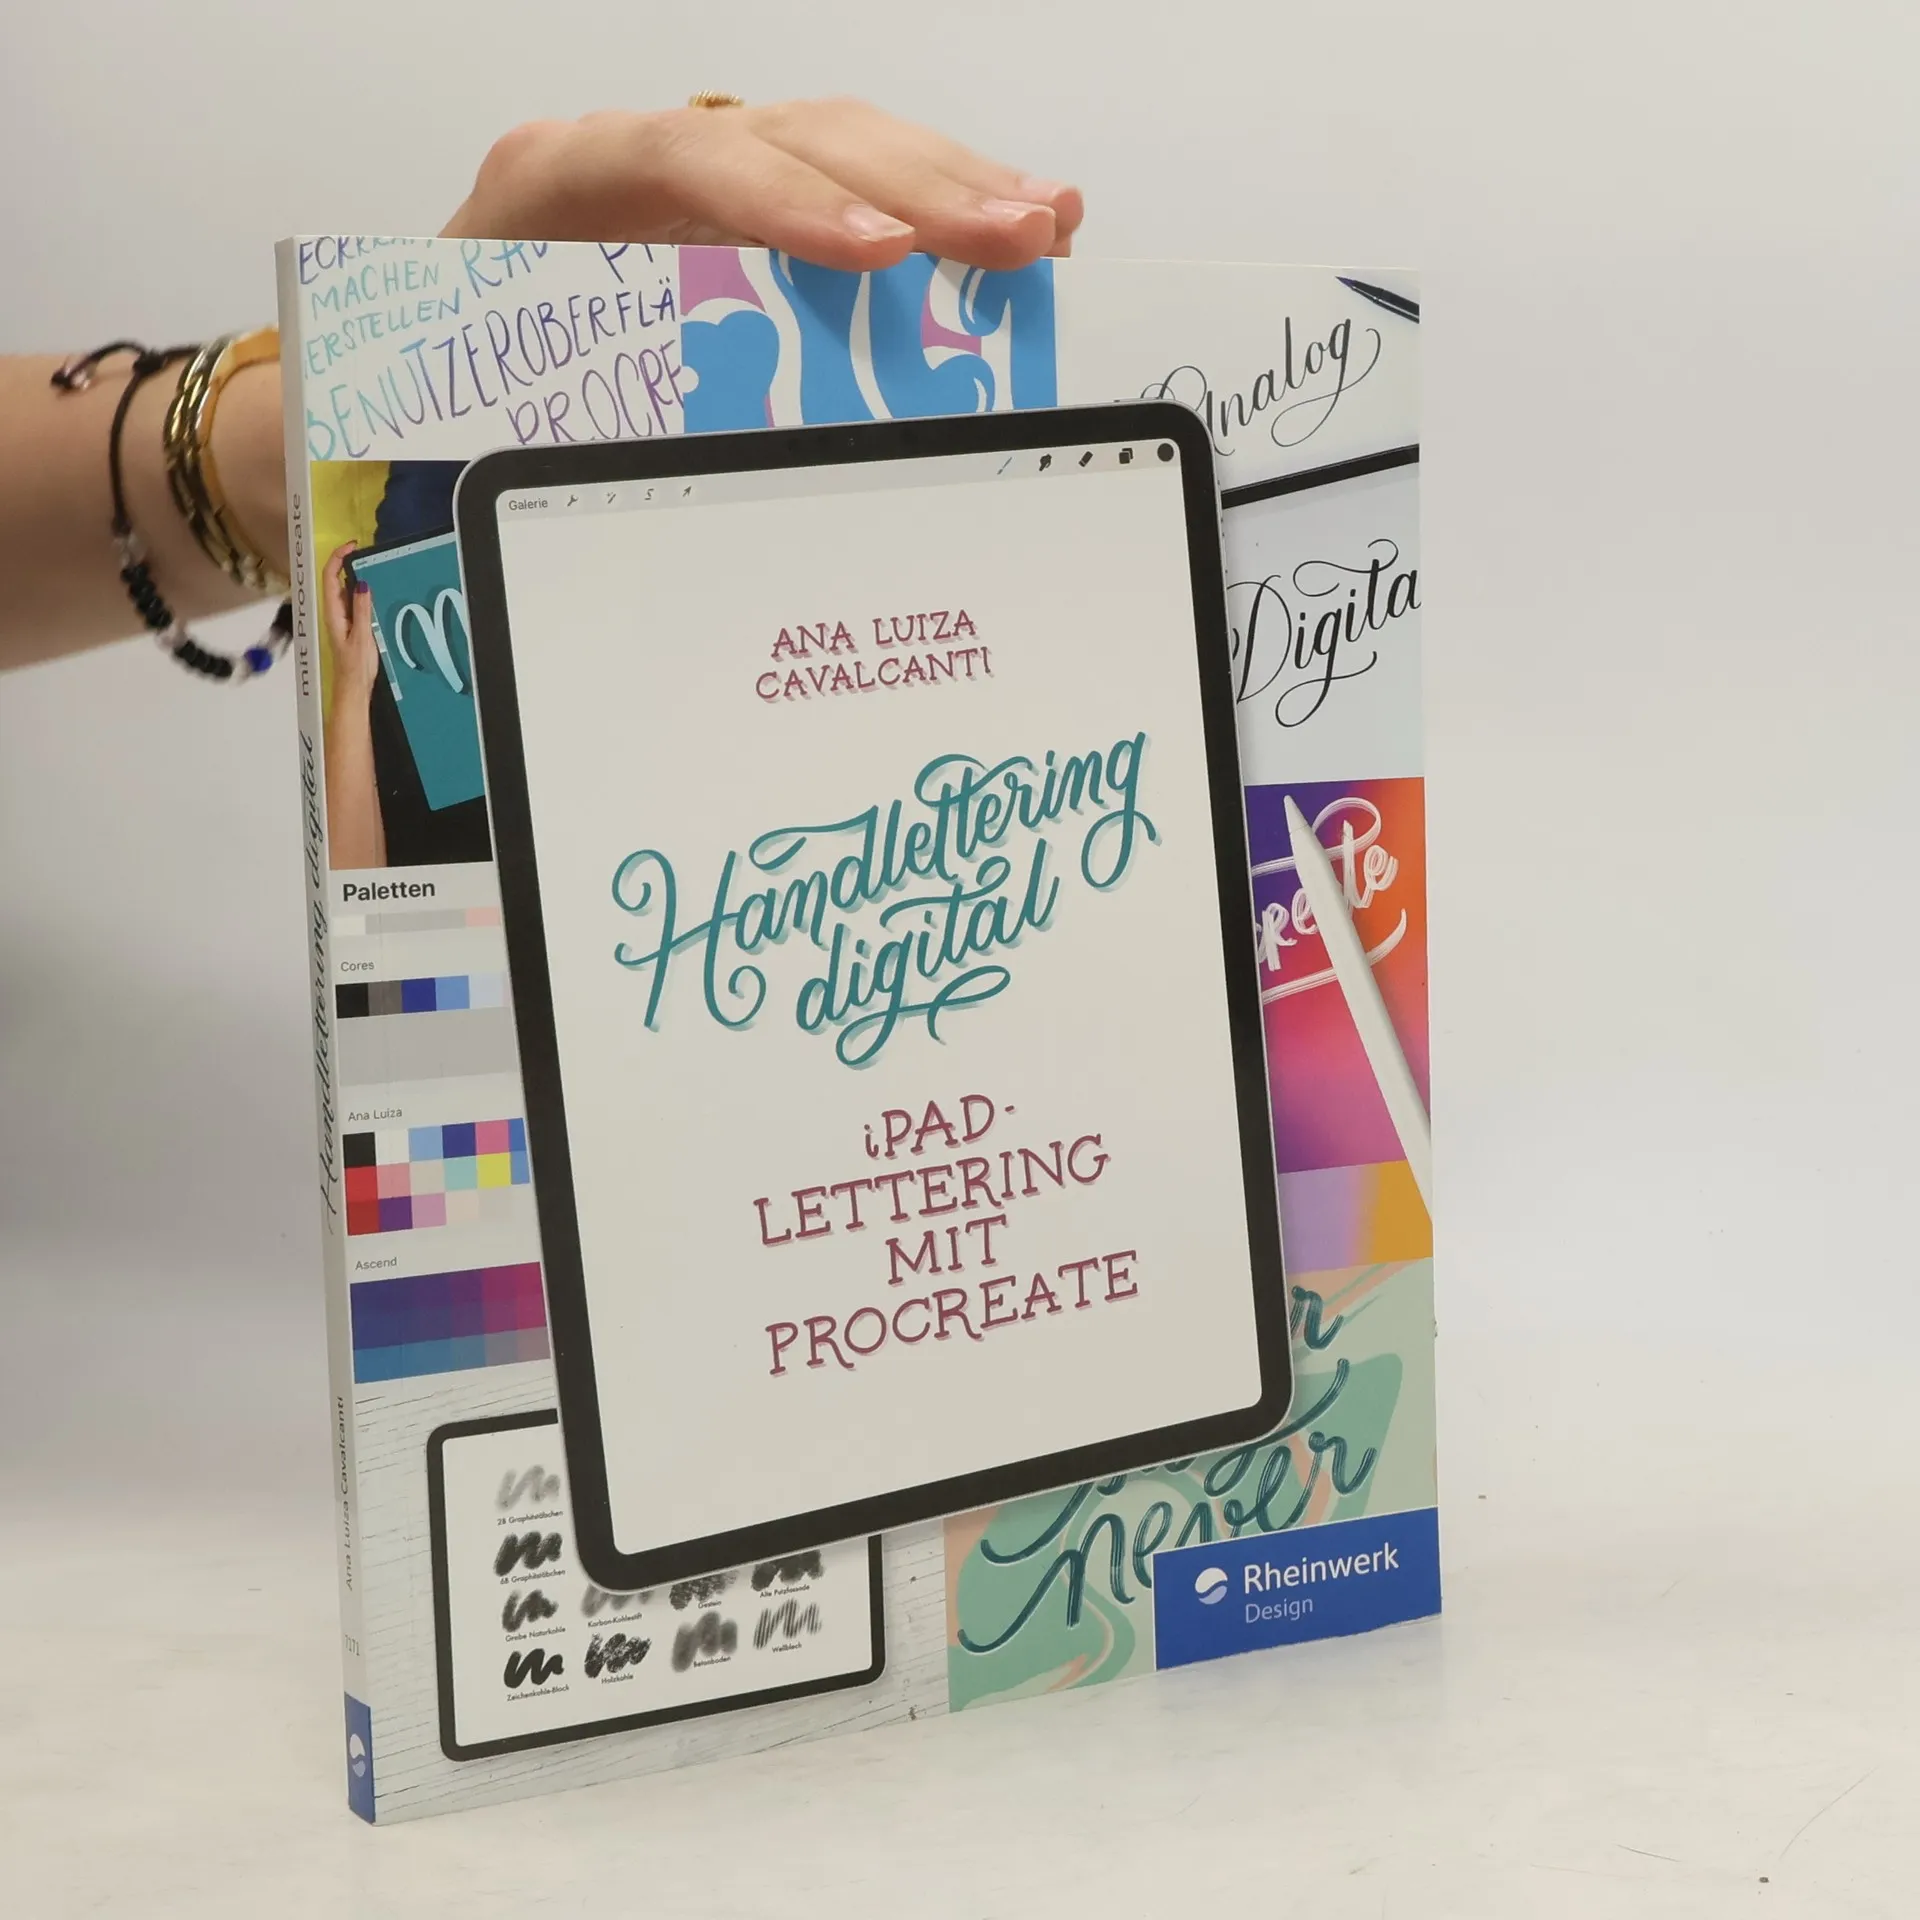 MACHEN
ERSTELLEN
BENUTZEROBERFLÄ
PROCRE
Analog
Digita
Galerie
ANA LUIZA
CAVALCANTI
Handlettering
digital
iPAD-
LETTERING
MIT
PROCREATE
Paletten
Cores
Ana Luiza
Ascend
create
never
28 Graphitstäbchen
6B Graphitstäbchen
Grobe Naturkohle
Zeichenkohle-Block
Karbon-Kohlestift
Holzkohle
Gestein
Betonboden
Alte Putzfassade
Wellblech
Rheinwerk
Design
Ana Luiza Cavalcanti Handlettering digital mit Procreate
7171